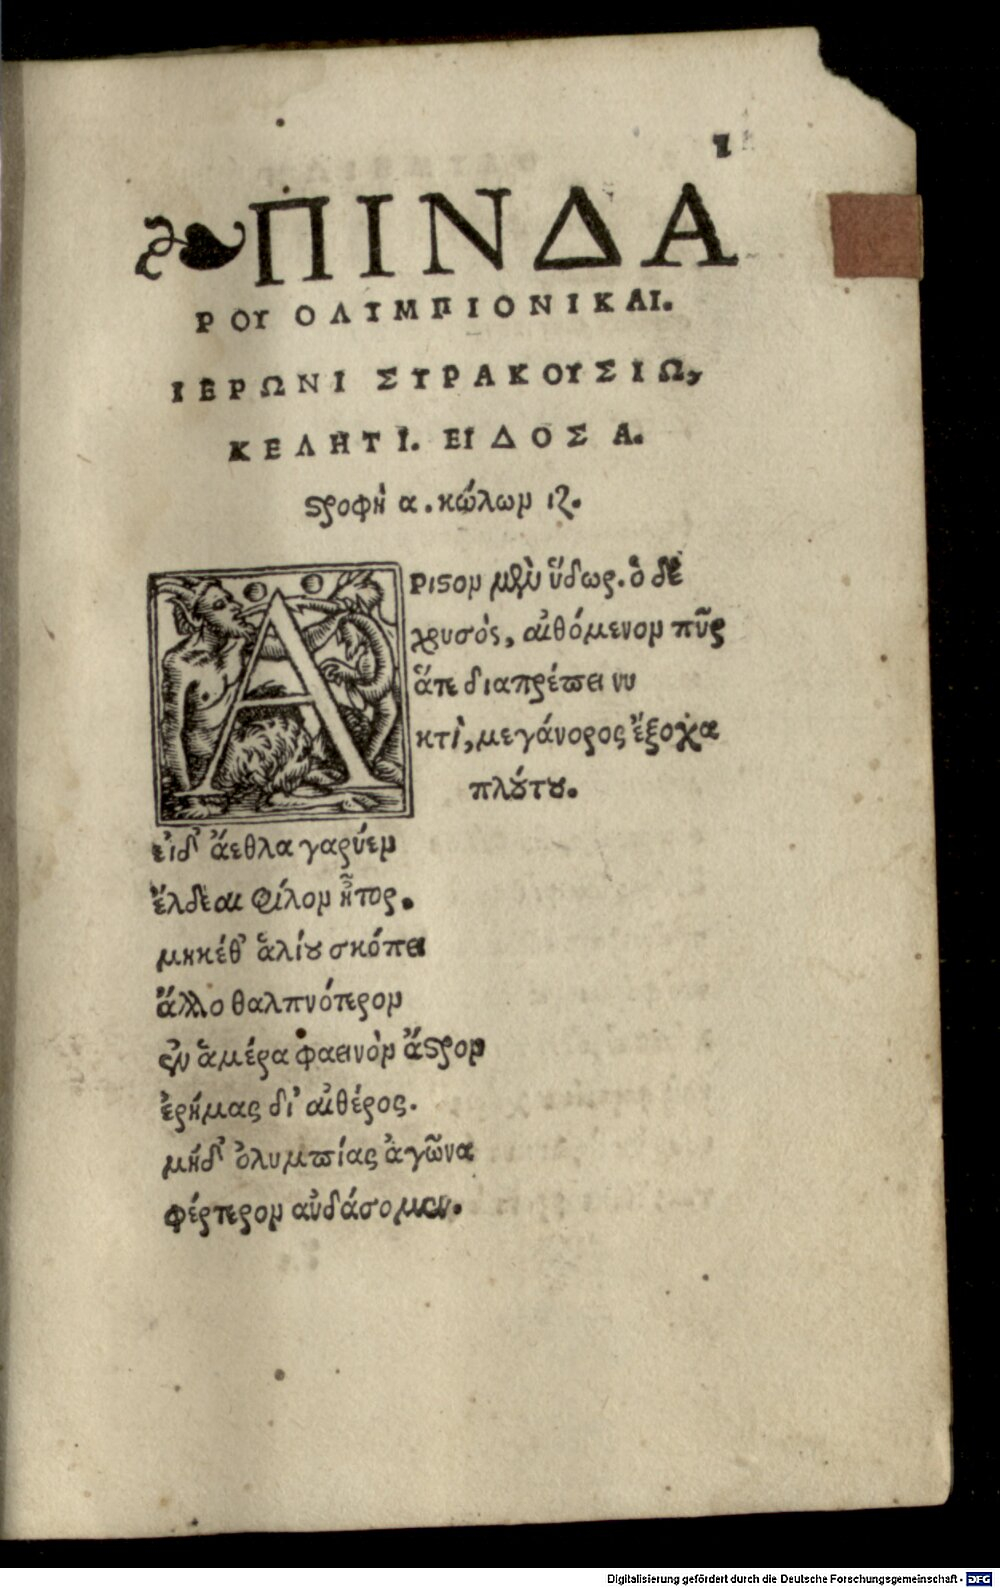 1
❧ΠΙΝΔΑ
ΡΟΥ ΟΛΥΜΠΙΟΝΙΚΑΙ.
ΙΕΡΩΝΙ ΣΥΡΑΚΟΥΣΙΩ,
ΚΕΛΗΤΙ. ΕΙΔΟΣ Α.
ϛροφὴ α. κώλων ιζ.
ΑΡιϛον μὲν ὕδωρ. ὁ δὲ
χρυσὸς, αἰθόμενον πῦρ
ἅτε διαπρέπει νυ
κτὶ, μεγάνορος ἔξοχα
πλούτου.
εἰδ' ἄεθλα γαρύεν
ἔλδεαι φίλον ἦτορ.
μηκέθ' ἁλίου σκόπει
ἄλλο θαλπνότερον
ἐν ἁμέρα φαεινὸν ἄϛρον
ἐρήμας δι' αἰθέρος.
μήδ' ὀλυμπίας ἀγῶνα
φέρτερον αὐδάσομεν.
Digitalisierung gefördert durch die Deutsche Forschungsgemeinschaft - DFG